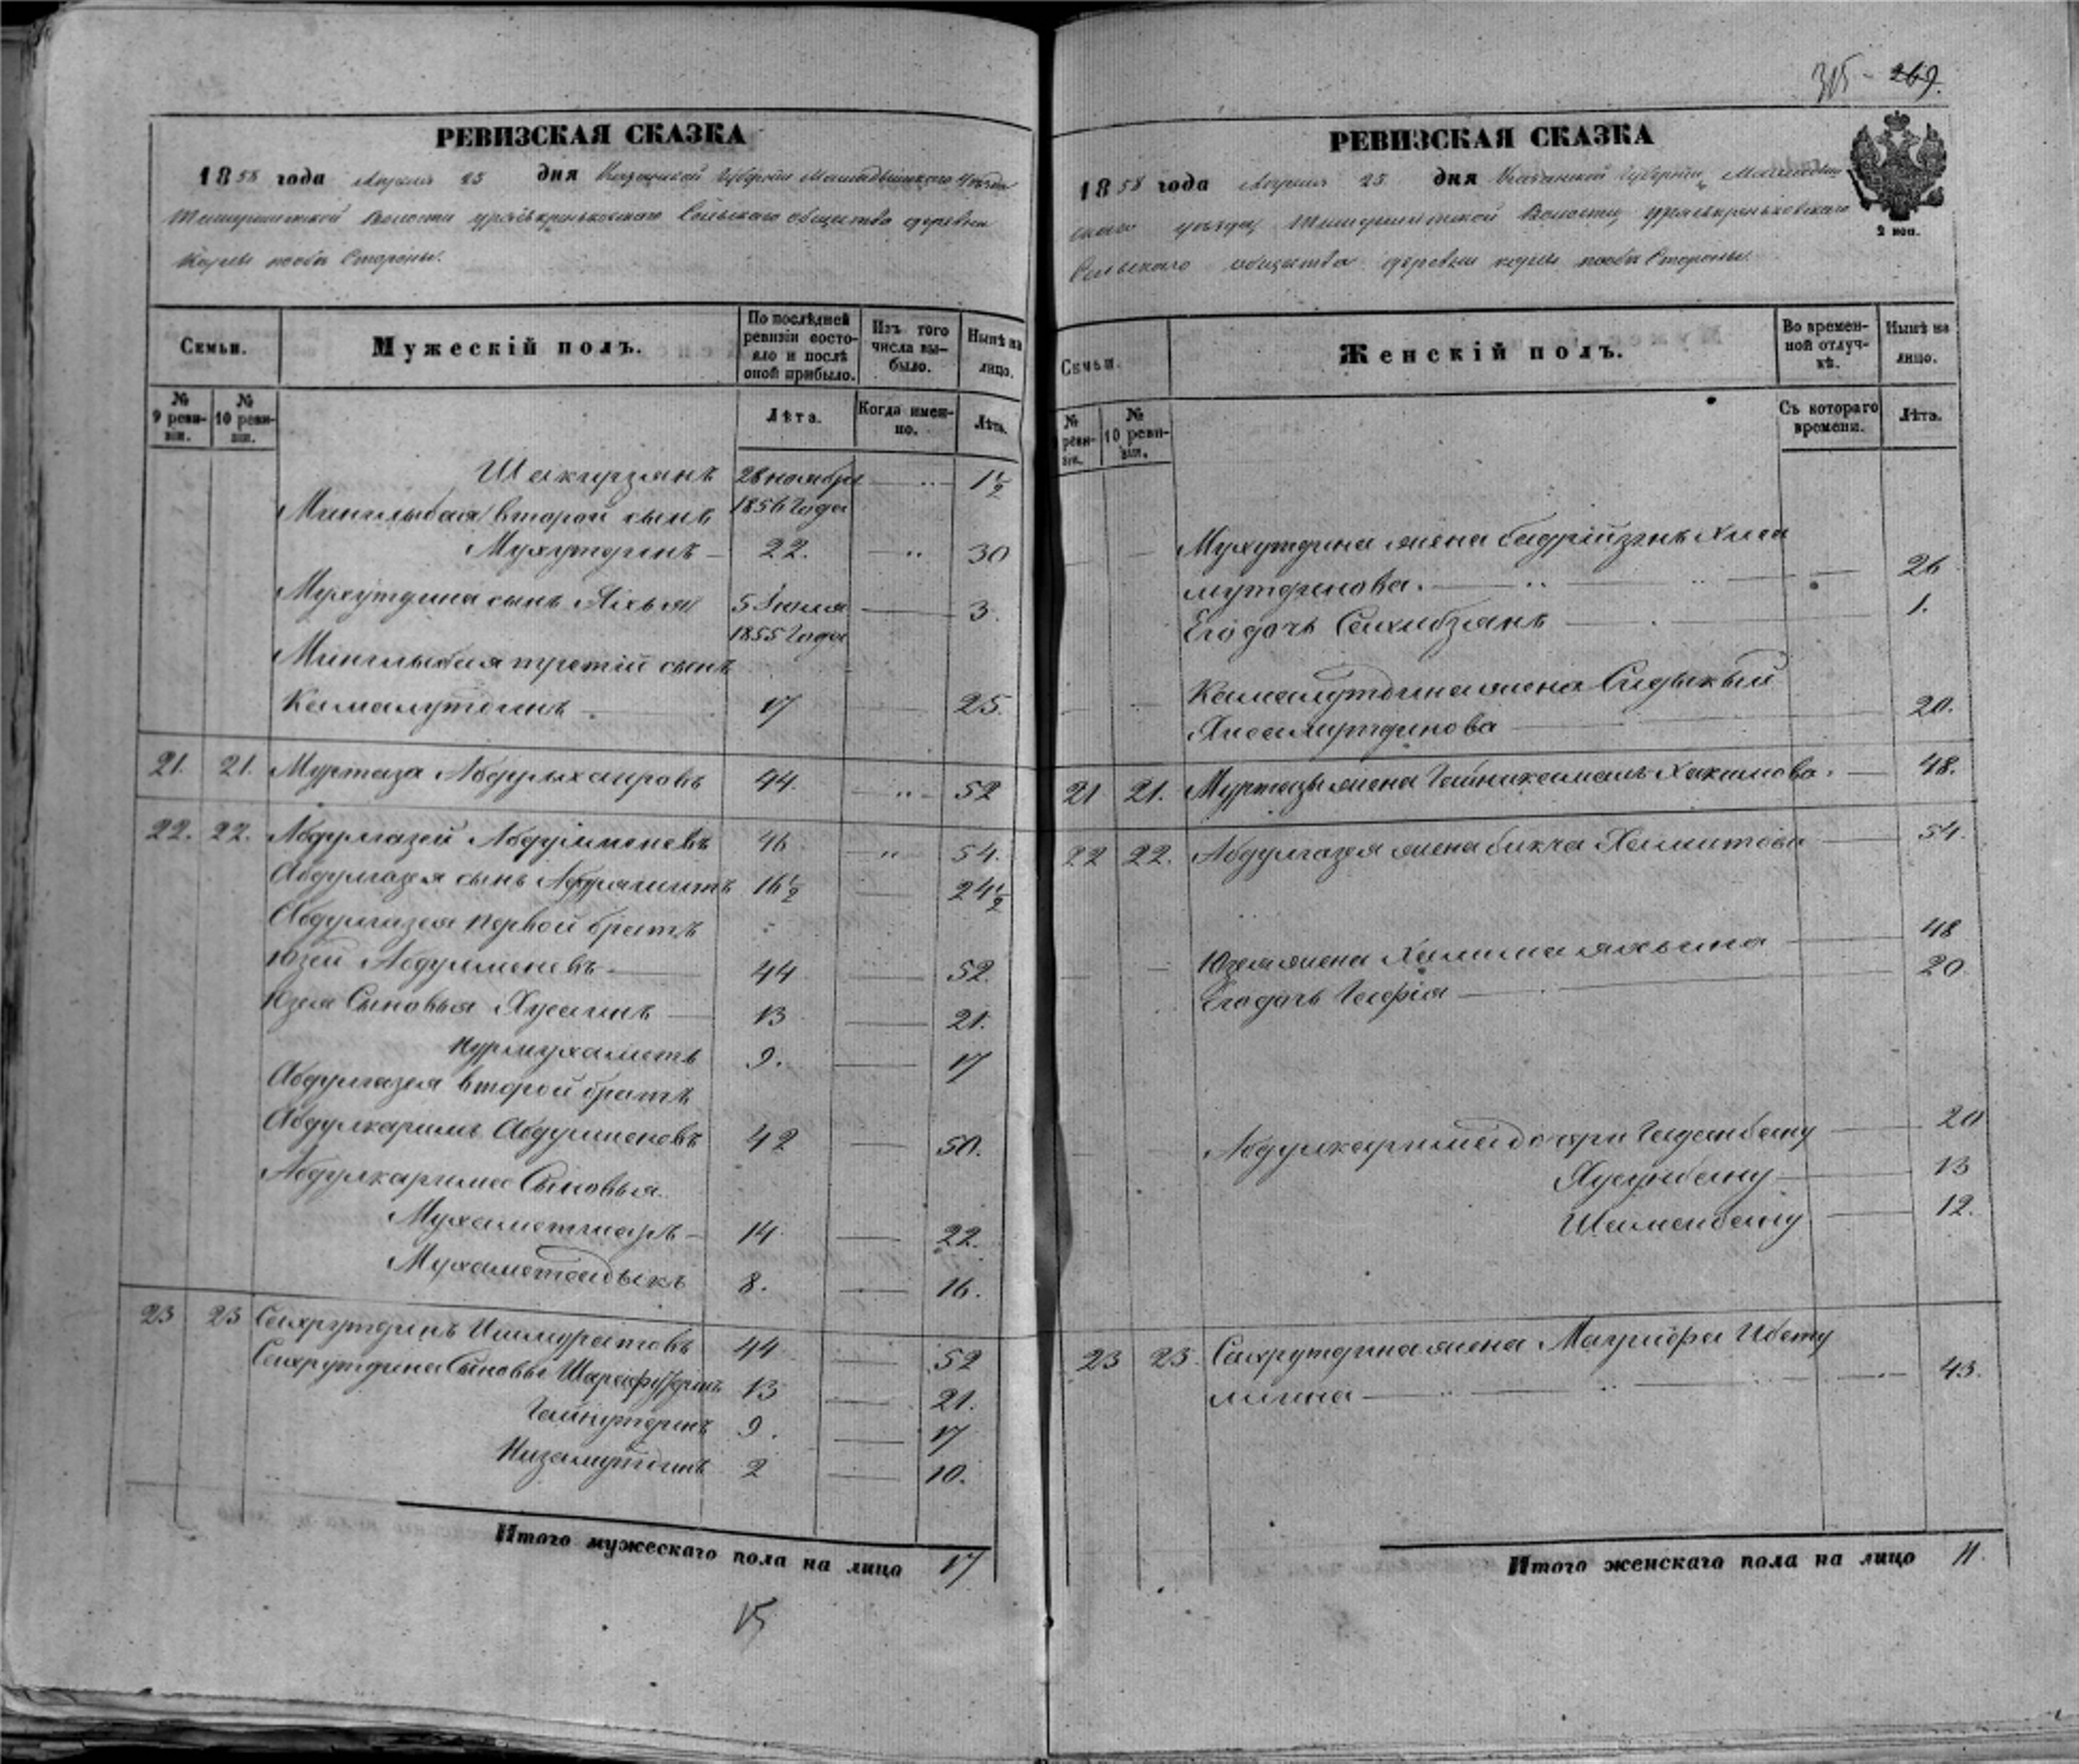 РЕВИЗСКАЯ СКАЗКА
1858 года Апреля 25 дня Казанской Губернии Мамадышского Уезда
волости Сельского общества деревни
Стороны.
Семьи.
Мужескій полъ.
По послѣдней ревизіи состояло и послѣ оной прибыло.
Изъ того числа выбыло.
Нынѣ на лицо.
№ 9 ревизіи.
№ 10 ревизіи.
Лѣта.
Когда именно.
Лѣта.
Шакирзянъ 28 ноября 1½
Минглыбая второй сынъ 1856 Года
Мухутдинъ 22. 30
Мухутдина сынъ Яхья 5 Іюля 3.
1855 Года
Минглыбая третій сынъ
Камалутдинъ 17 25.
21. 21. Муртаза Абдулхаировъ 44. 52
22. 22. Абдулгазей Абдулменевъ 46 54.
Абдулгазея сынъ Абдрашитъ 16½ 24½
Абдулгазея первой братъ
Юзей Абдулменевъ 44 52.
Юзея Сыновья Хусаинъ 13 21.
Нурмухаметъ 9. 17
Абдулгазея второй братъ
Абдулкаримъ Абдулменевъ 42 50.
Абдулкарима Сыновья
Мухаметшаръ 14 22.
Мухаметсадыкъ 8. 16.
23 23 Сахрутдинъ Ишмуратовъ 44 52
Сахрутдина Сыновья Шарафутдинъ 13 21.
Гайнутдинъ 9. 17
Низамутдинъ 2 10.
Итого мужескаго пола на лицо 17
15
315 - 269.
РЕВИЗСКАЯ СКАЗКА
2 коп.
1858 года Апреля 25. дня Казанской Губерніи Мамадыш
скаго уезда, волости,
Сельскаго общества деревни Стороны.
Семьи.
Женскій полъ.
Во временной отлучкѣ.
Нынѣ на лицо.
№ реви-зіи.
№ 10 ревизіи.
Съ котораго времени.
Лѣта.
Мухутдина жена Бадрійзянъ Хиса
мутдинова. 26
Его дочь Сахибзянъ 1.
Камалутдина жена Сидыкый
Хисамутдинова 20.
21 21. Муртазы жена Гайникамалъ Хакимова. 48.
22 22. Абдулгазея жена Бикча Хамитова 54.
Юзея жена Халима Яхьина 48
Его дочь Гафія 20
Абдулкарима дочери Гаданбану 20
Хусунбану 13
Шаманбану 12.
23 23. Сахрутдина жена Маулифа Ибету
ллина 43.
Итого женскаго пола на лицо 11.